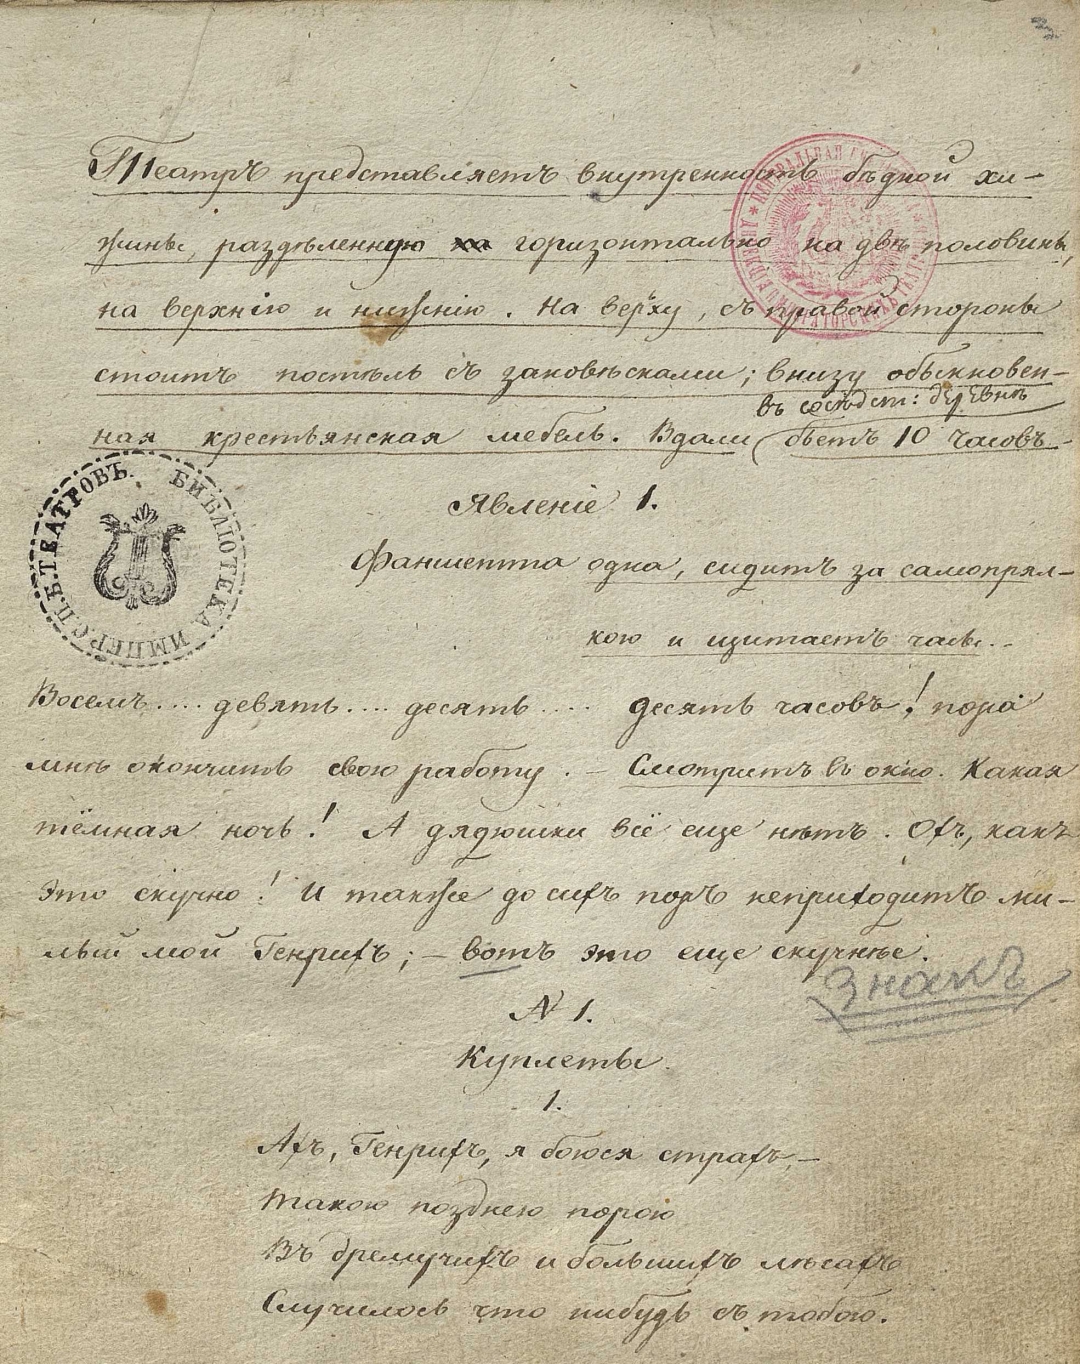 Театръ представляетъ внутренность бѣдной хи-
жины, раздѣленную горизонтально на двѣ половины,
на верхнію и нижнію. На верху, съ правой стороны
стоитъ постѣль съ зановѣсками; внизу обыкновен-
въ сосѣдст: деревнѣ
ная крестьянская мебель. Вдали (бьетъ 10 часовъ
БИБЛIОТЕКА ИМПЕР. С.П.Б. ТЕАТРОВЪ.
Явленіе 1.
Фаншетта одна, сидитъ за самопрял-
кою и щитаетъ часы..
Восемь.... девять.... десять.... десять часовъ! пора
мнѣ окончить свою работу. – Смотритъ въ окно. Какая
тёмная ночь! А дядюшки всё еще нѣтъ. Охъ, какъ
это скучно! И также до сихъ поръ неприходитъ ми-
лый мой Генрихъ; – вотъ это еще скучнѣе.
Знакъ
N 1.
Куплеты.
1.
Ахъ, Генрихъ, я боюся страхъ, –
Такою позднею порою
Въ дремучихъ и большихъ лѣсахъ
Случилось что нибудь съ тобою.